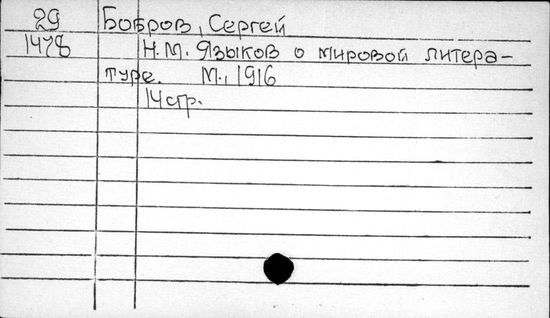 29 Бобров, Сергей
1478 Н.М. Языков о мировой литера-
туре. М., 1916
14 стр.